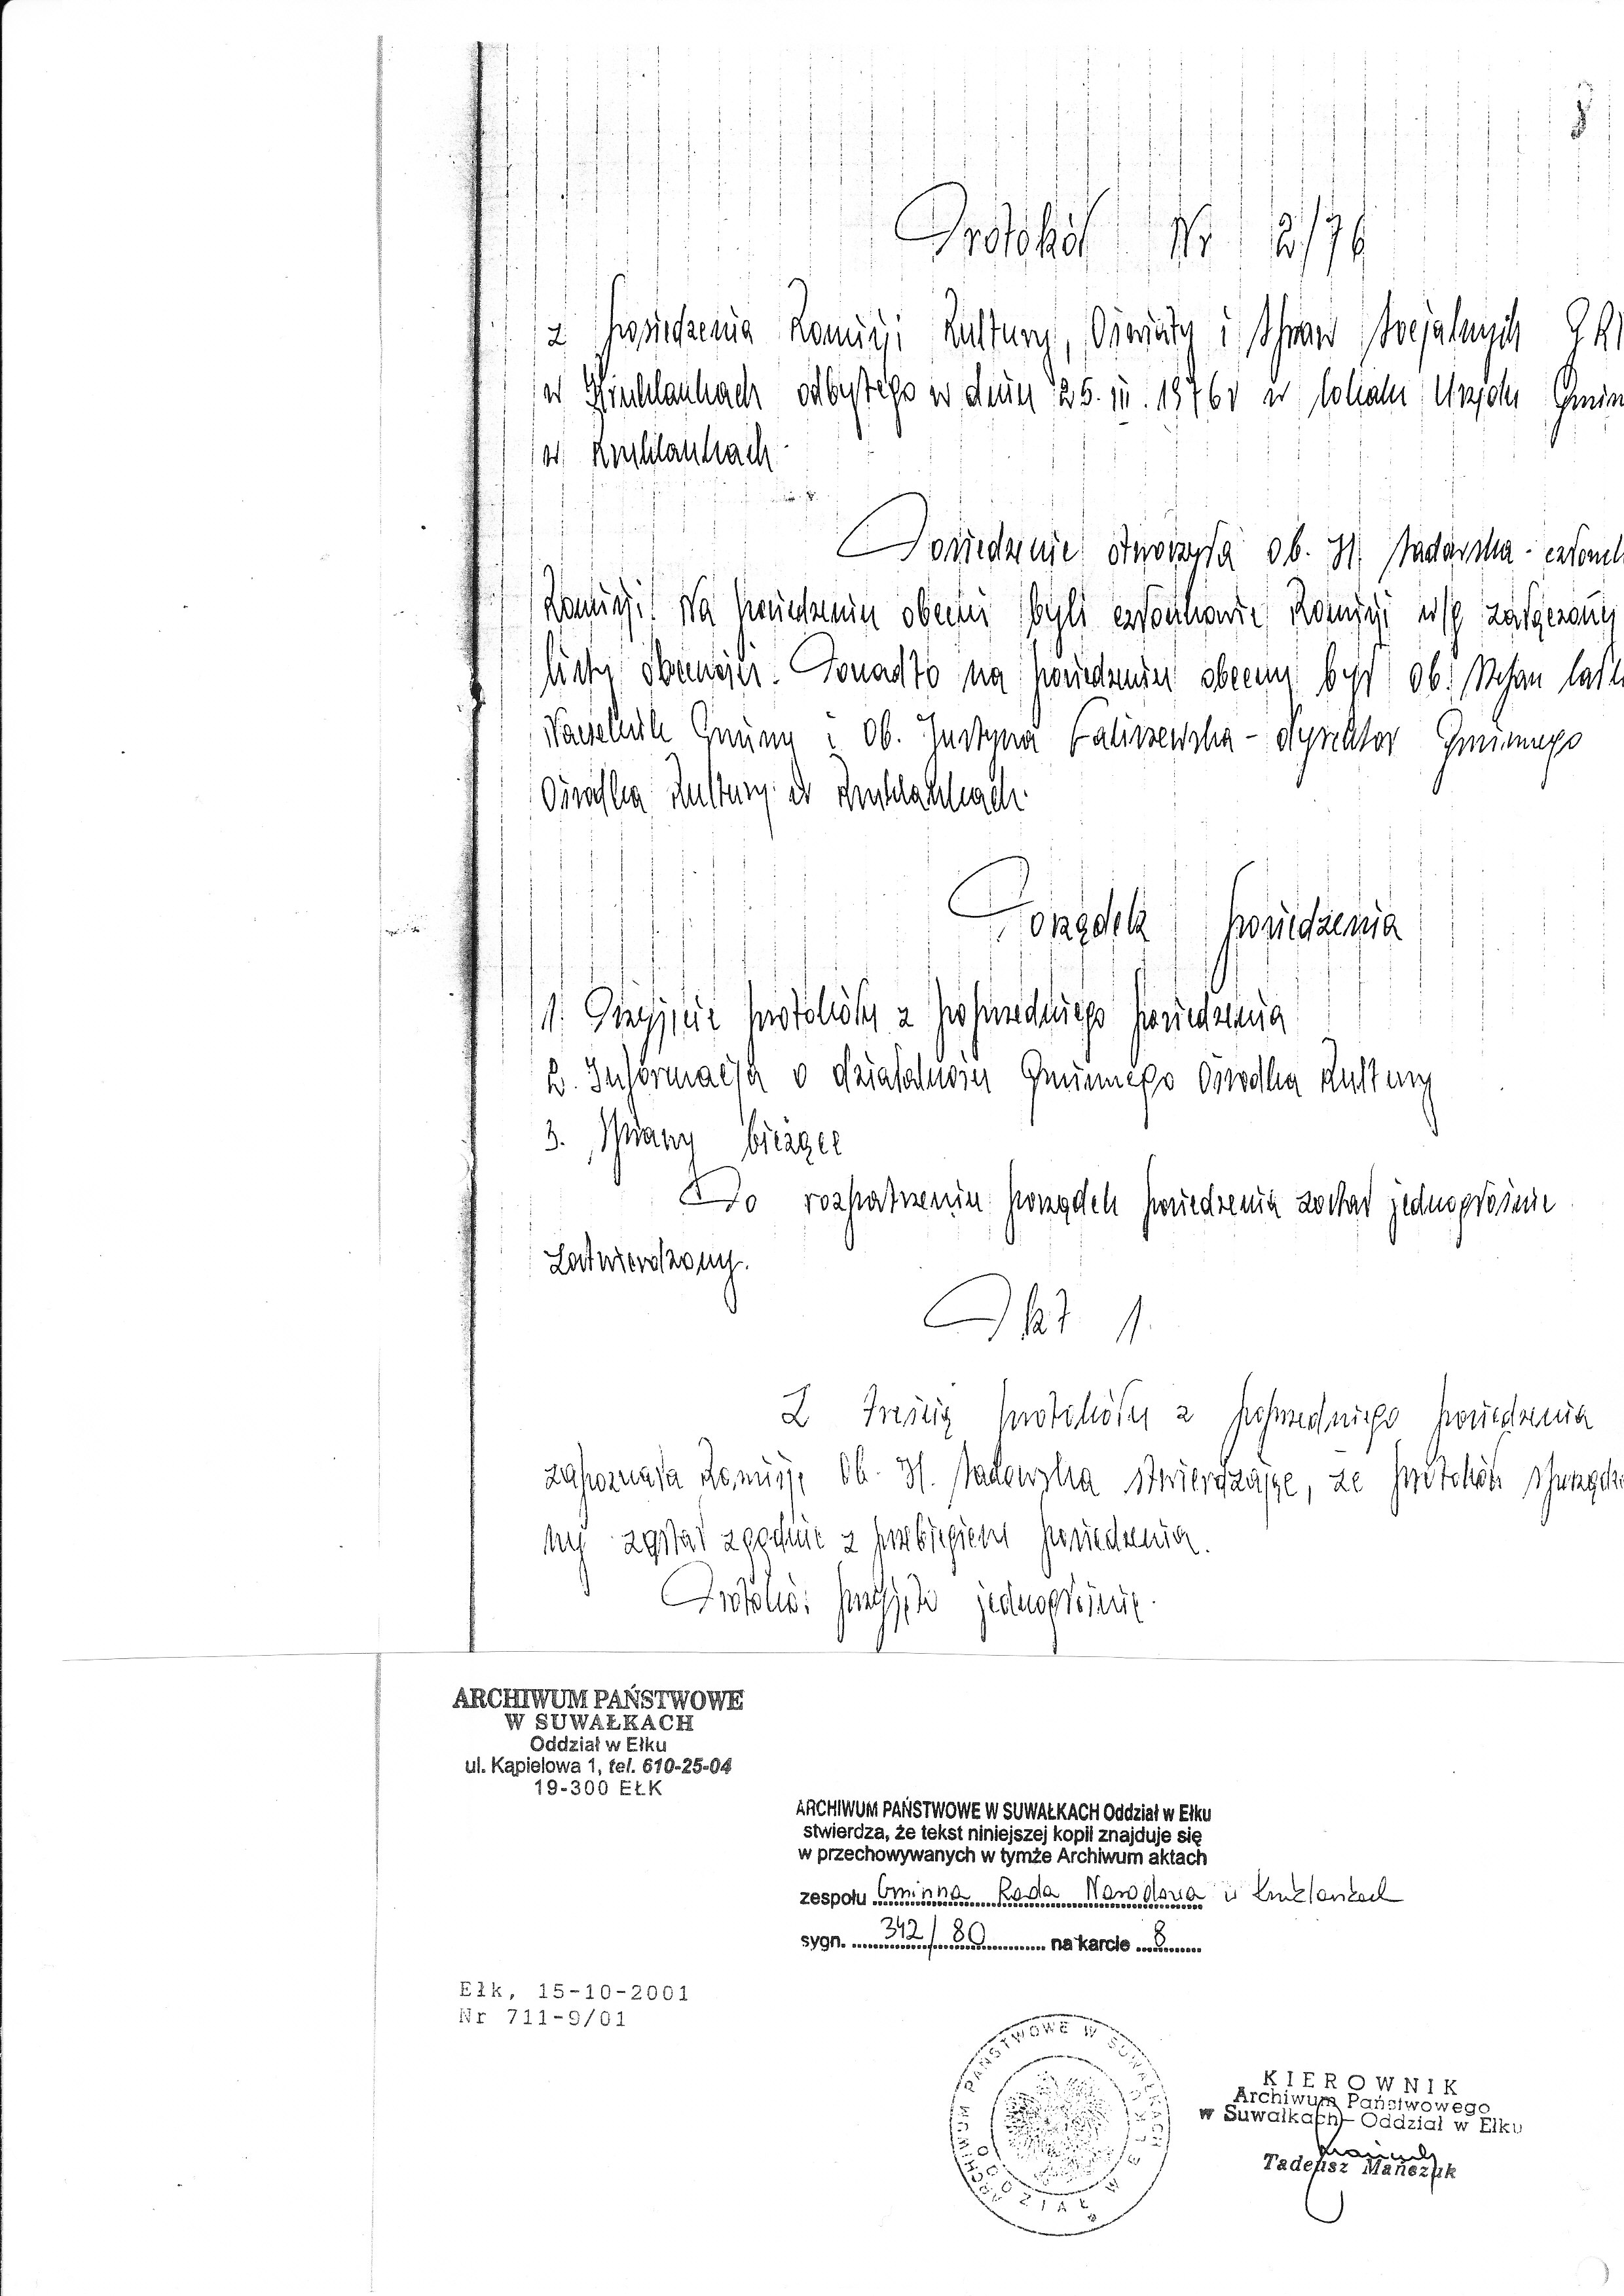 8
Protokół Nr 2/76
z posiedzenia Komisji Kultury, Oświaty i Spraw Socjalnych
w Kruklankach odbytego w dniu 25.III.1976r w lokalu Urzędu Gmin
w Kruklankach
Posiedzenie otworzyła ob. H. Sadowska - członek
Komisji. Na posiedzeniu obecni byli członkowie Komisji wg załączonej
listy obecności. Ponadto na posiedzeniu obecny był ob. Stefan
Naczelnik Gminy i ob. Justyna Faliszewska - dyrektor Gminnego
Ośrodka Kultury w Kruklankach.
Porządek posiedzenia
1. Przyjęcie protokółu z poprzedniego posiedzenia
2. Informacja o działalności Gminnego Ośrodka Kultury
3. Sprawy bieżące
Do rozpatrzenia porządek posiedzenia został jednogłośnie
zatwierdzony.
Pkt 1.
Z treścią protokółu z poprzedniego posiedzenia
zapoznała Komisję Ob. H. Sadowska stwierdzając, że protokół sporządzo
ny został zgodnie z przebiegiem posiedzenia.
Protokół przyjęto jednogłośnie.
ARCHIWUM PAŃSTWOWE
W SUWAŁKACH
Oddział w Ełku
ul. Kąpielowa 1, tel. 610-25-04
19-300 EŁK
ARCHIWUM PAŃSTWOWE W SUWAŁKACH Oddział w Ełku
stwierdza, że tekst niniejszej kopii znajduje się
w przechowywanych w tymże Archiwum aktach
zespołu Gminna Rada Narodowa w Kruklankach
sygn. 342/80 na karcie 8
Ełk, 15-10-2001
Nr 711-9/01
ARCHIWUM PAŃSTWOWE W SUWAŁKACH
ODDZIAŁ W EŁKU
KIEROWNIK
Archiwum Państwowego
w Suwałkach - Oddział w Ełku
Tadeusz Mańczuk